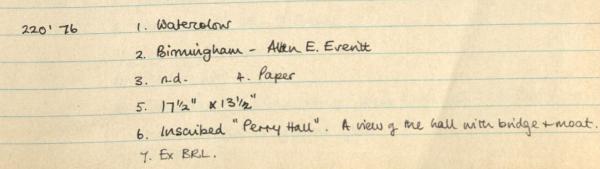 220'76 1. Watercolour
2. Birmingham - Allen E. Everitt
3. n.d. 4. Paper
5. 17½" x 13½"
6. Inscribed "Perry Hall". A view of the hall with bridge + moat.
7. Ex BRL.